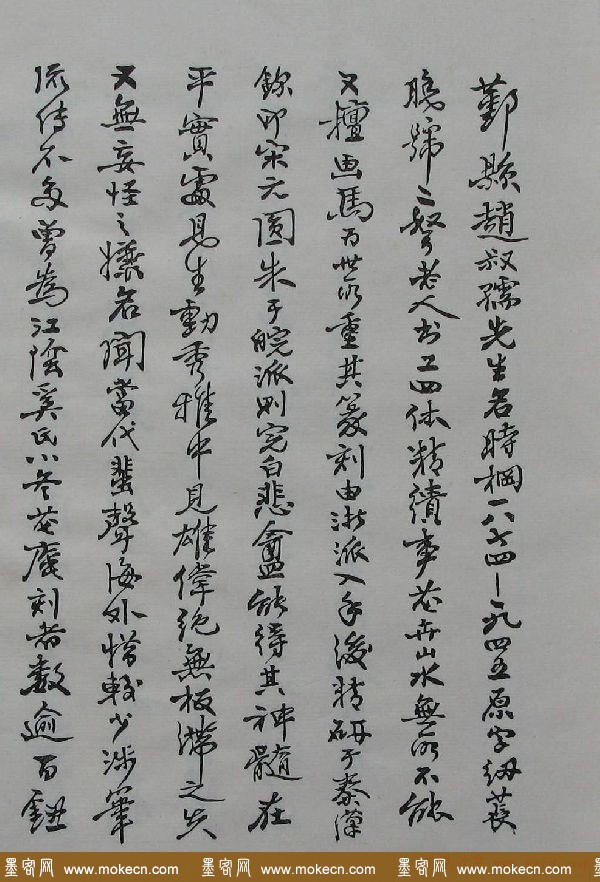 鄞縣趙叔孺先生名時棡一八七四—一九四五原字紉萇
晚號二弩老人書工四体精績事花卉山水無所不能
又擅画馬為世所重其篆刻由浙派入手後精研于秦漢
鉥印宋元圓朱于皖派則完白悲盦能得其神髓在
平實處見生動秀雅中見雄偉絕無板滯之失
又無妄怪之 名聞當代蜚聲海外惜較少涉筆
流傳不多曾為江陰奚氏八冬花庵刻者數逾百鈕
墨客网 www.mokecn.com 墨客网 www.mokecn.com 墨客网 www.mokecn.com